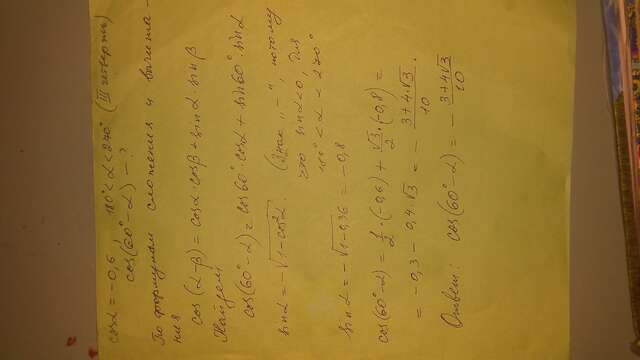 cosα = -0,6 180° < α < 270° (III четверть)
cos(60° - α) - ?
По формулам сложения и вычита-
ния
cos(α-β) = cosα cosβ + sinα sinβ
Найдем
cos(60°-α) = cos60°·cosα + sin60°·sinα
sinα = -√1-cos²α. (Знак „-“, потому
что sinα<0, для
180° < α < 270°
sinα = -√1-0,36 = -0,8
cos(60°-α) = 1/2·(-0,6) + √3/2·(-0,8) =
= -0,3 - 0,4·√3 = - 3+4·√3/10.
Ответ: cos(60°-α) = - 3+4√3/10